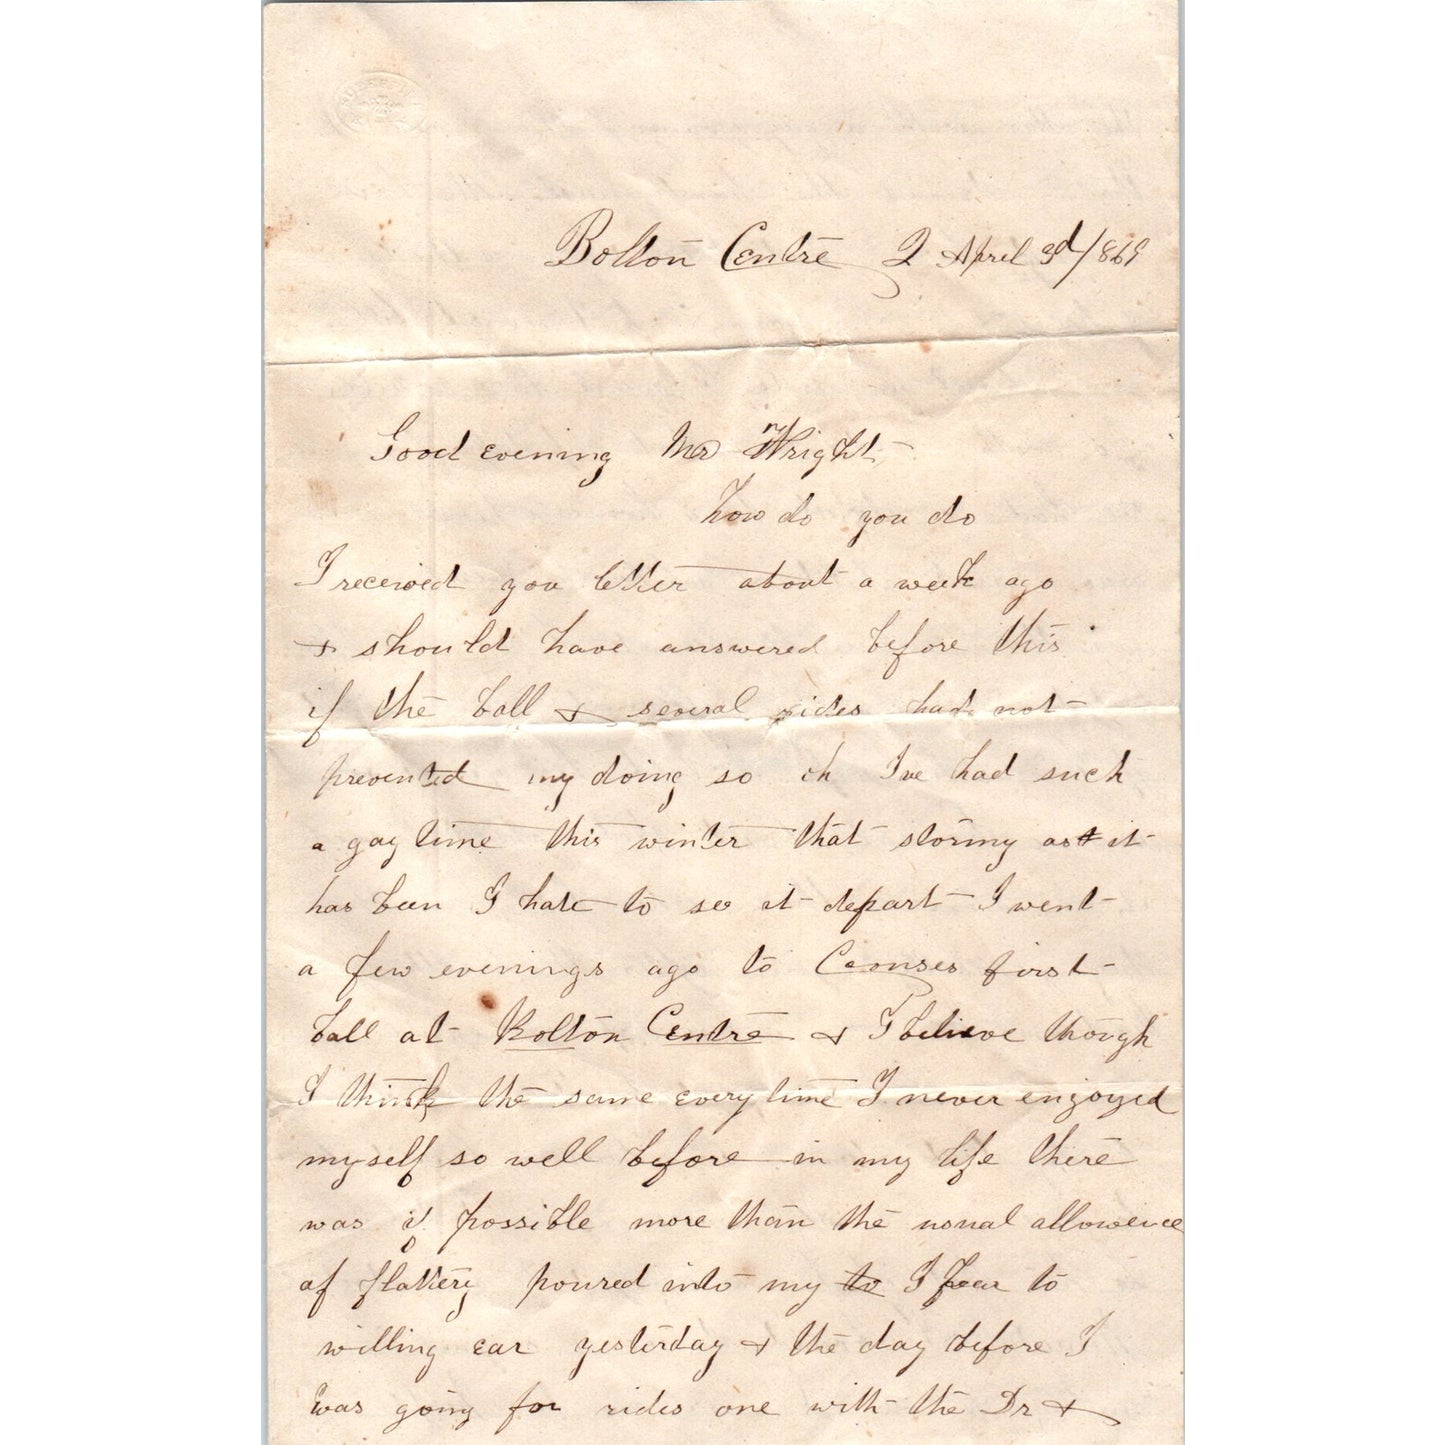 Bolton Centre Q April 3d/869
Good evening Mr Wright
how do you do
I received you letter about a week ago
& should have answered before this
if the ball & several rides had not
prevented my doing so oh Ive had such
a gay time this winter that stormy as it
has been I hate to see it depart I went
a few evenings ago to first
ball at Bolton Centre & I believe though
I think the same every time I never enjoyed
myself so well before in my life there
was if possible more than the usual allowence
of flattery poured into my to I fear to
willing ear yesterday & the day before I
was going for rides one with the Dr &